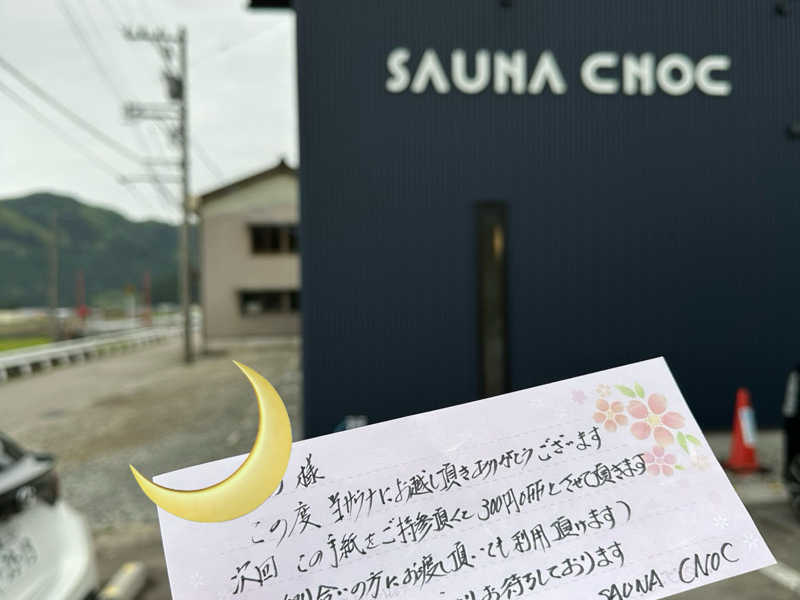 SAUNA CNOC
様
この度 当サウナにお越し頂きありがとうございます
次回 この手紙をご持参頂くと 300円offとさせて頂きます
り合いの方にお渡し頂いても利用頂けます)
お待ちしております
SAUNA CNOC